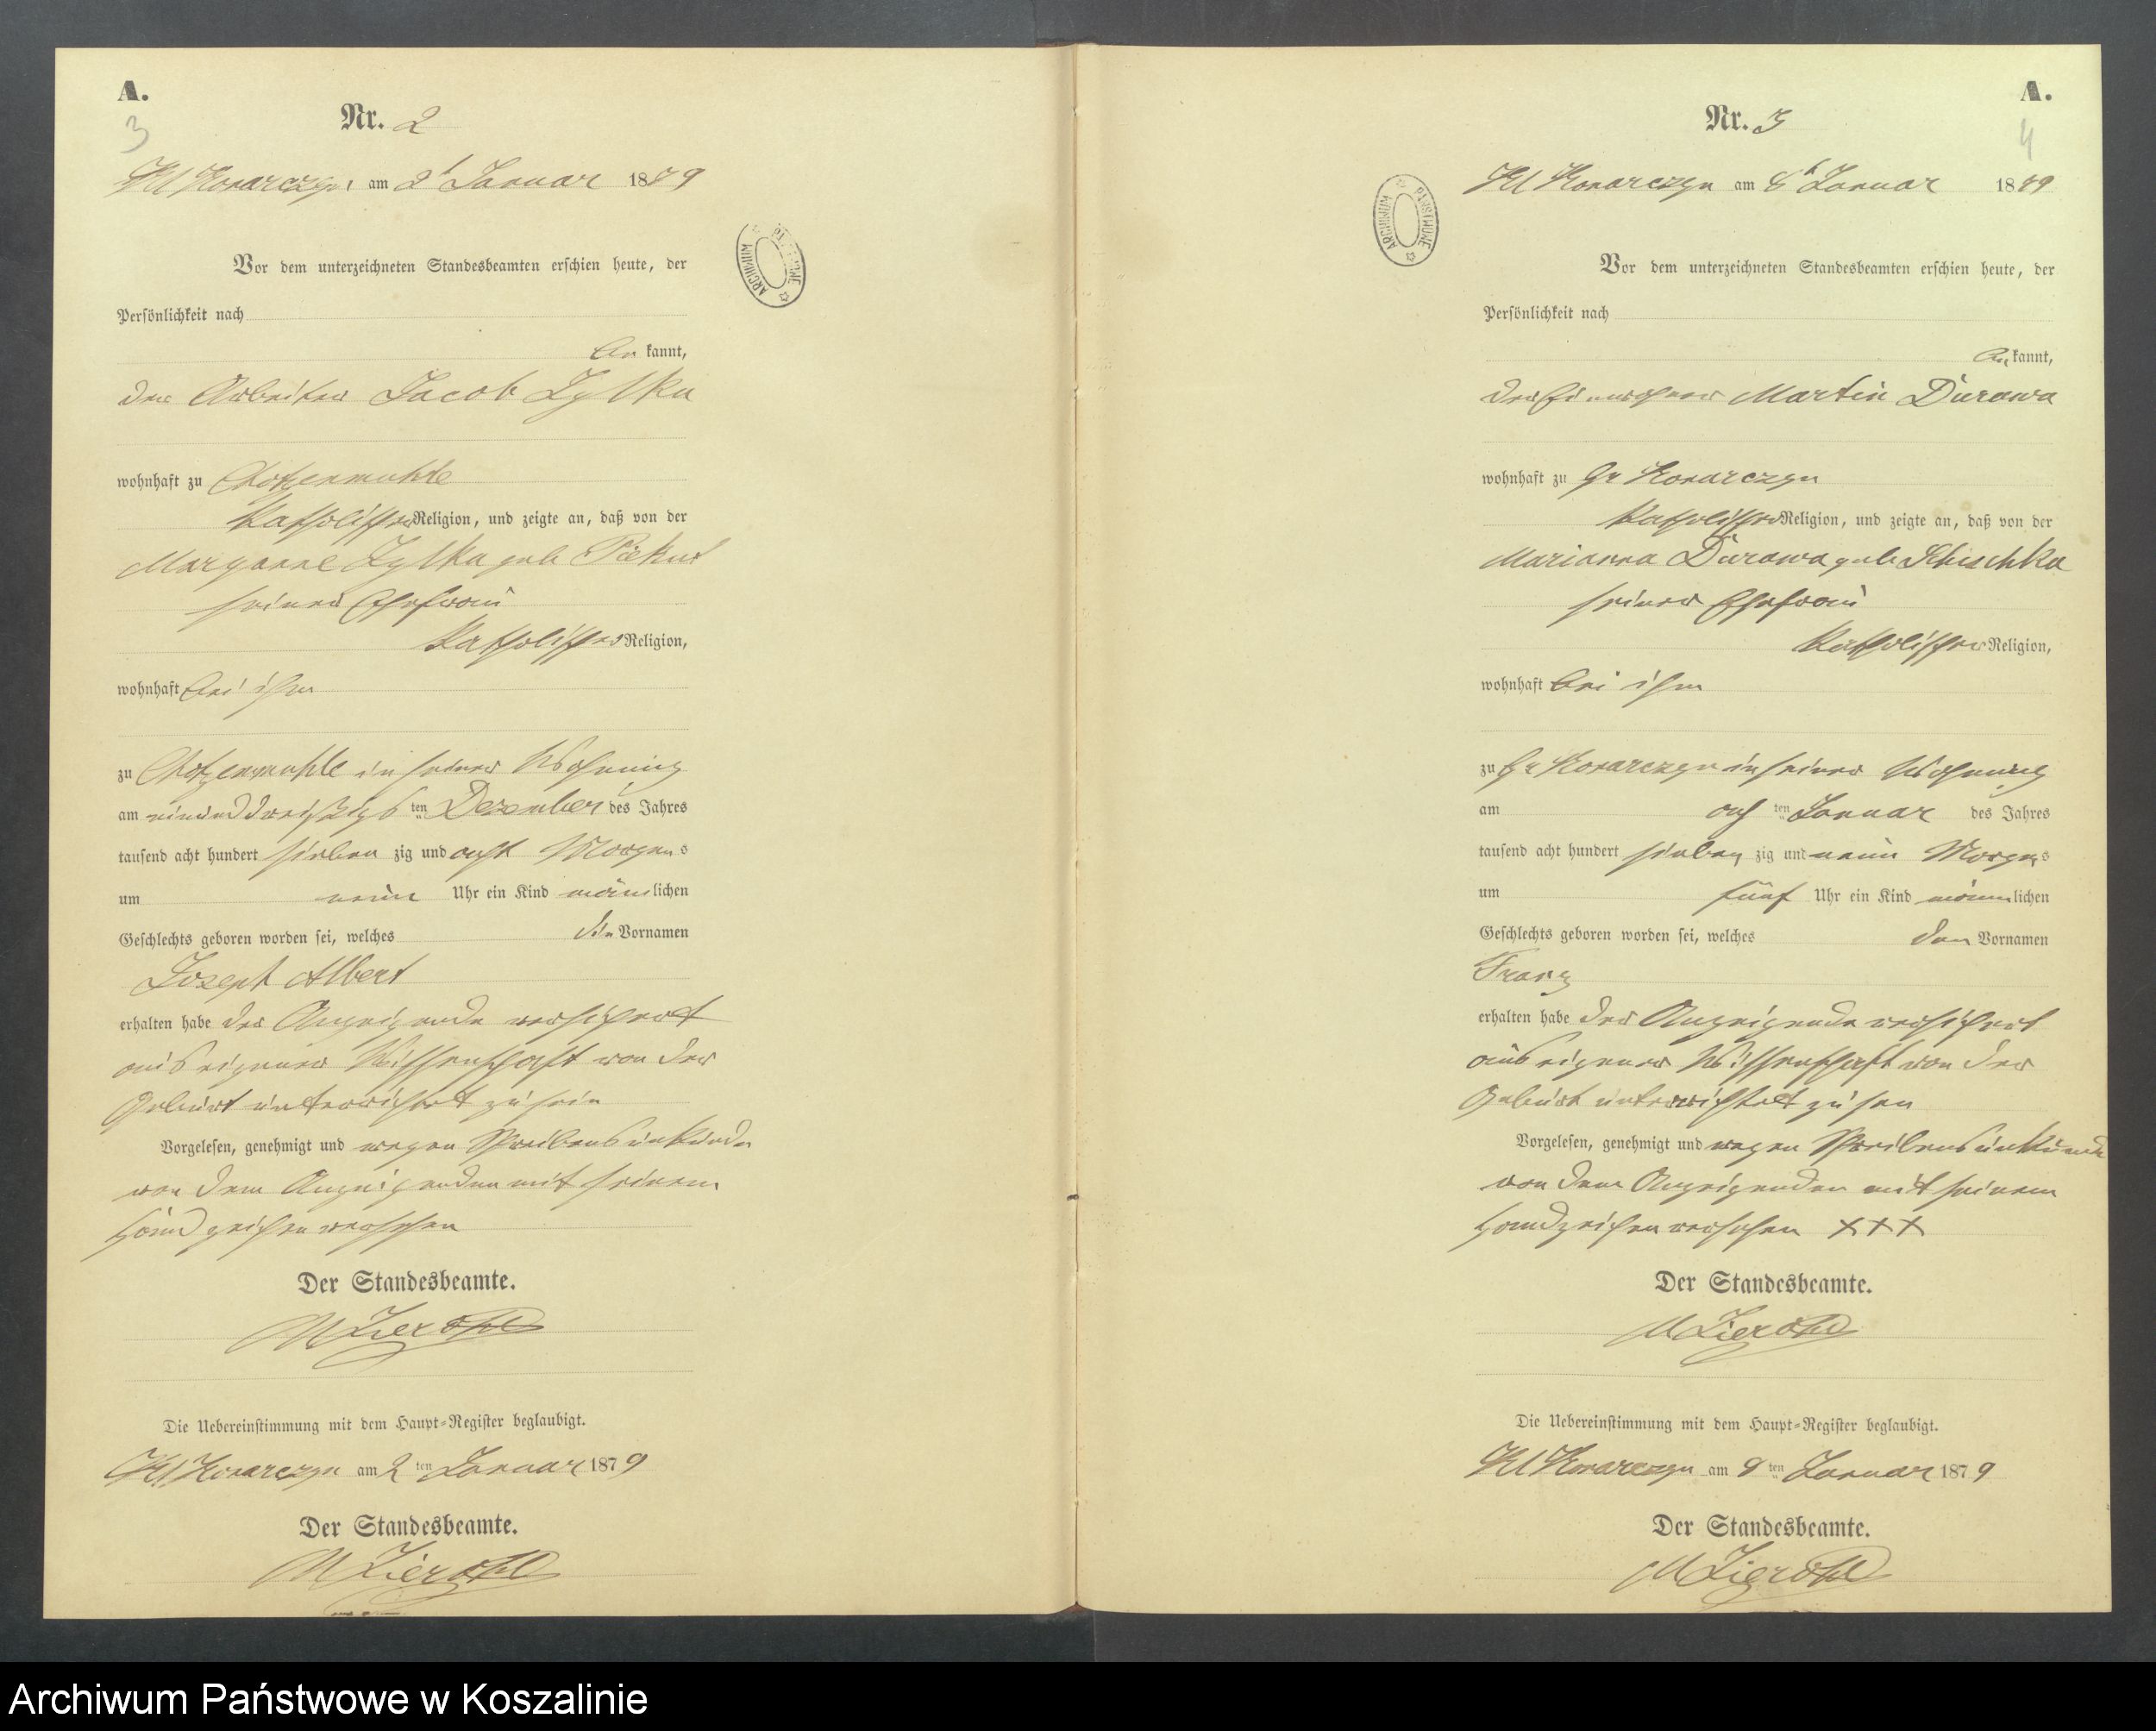 A.
3
Nr. 2
Kl Konarczyn am 2t Januar 1879
Vor dem unterzeichneten Standesbeamten erschien heute, der
Persönlichkeit nach
be kannt,
der Arbeiter Jacob Zylka
wohnhaft zu Chotzenmuhle
katholischer Religion, und zeigte an, daß von der
Maryanne Zylka geb Piekut
seiner Ehefrau
katholischer Religion,
wohnhaft bei ihm
zu Chotzenmuhle in seiner Wohnung
am einunddreißigs ten Dezember des Jahres
tausend acht hundert sieben zig und acht Morgens
um neun Uhr ein Kind männlichen
Geschlechts geboren worden sei, welches die Vornamen
Joseph Albert
erhalten habe der Anzeigende versichert
aus eigener Wissenschaft von der
Geburt unterrichtet zu sein
Vorgelesen, genehmigt und wegen Schreibensunkunde
von dem Anzeigenden mit seinem
Handzeichen versehen
Der Standesbeamte.
Die Uebereinstimmung mit dem Haupt-Register beglaubigt.
Kl Konarczyn am 2 ten Januar 1879
Der Standesbeamte.
ARCHIWUM PAŃSTWOWE
A.
4
Nr. 3
Kl Konarczyn am 8t Januar 1879
Vor dem unterzeichneten Standesbeamten erschien heute, der
Persönlichkeit nach
be kannt,
der Einwohner Martin Durawa
wohnhaft zu Gr Konarczyn
katholischer Religion, und zeigte an, daß von der
Marianna Durawa geb
seiner Ehefrau
katholischer Religion,
wohnhaft bei ihm
zu Gr Konarczyn in seiner Wohnung
am ach ten Januar des Jahres
tausend acht hundert sieben zig und neun Morgens
um fünf Uhr ein Kind männlichen
Geschlechts geboren worden sei, welches den Vornamen
Franz
erhalten habe der Anzeigende versichert
aus eigener Wissenschaft von der
Geburt unterrichtet zu sen
Vorgelesen, genehmigt und wegen Schreibensunkunde
von dem Anzeigenden mit seinem
Handzeichen versehen XXX
Der Standesbeamte.
Die Uebereinstimmung mit dem Haupt-Register beglaubigt.
Kl Konarczyn am 8 ten Januar 1879
Der Standesbeamte.
ARCHIWUM PAŃSTWOWE
Archiwum Państwowe w Koszalinie